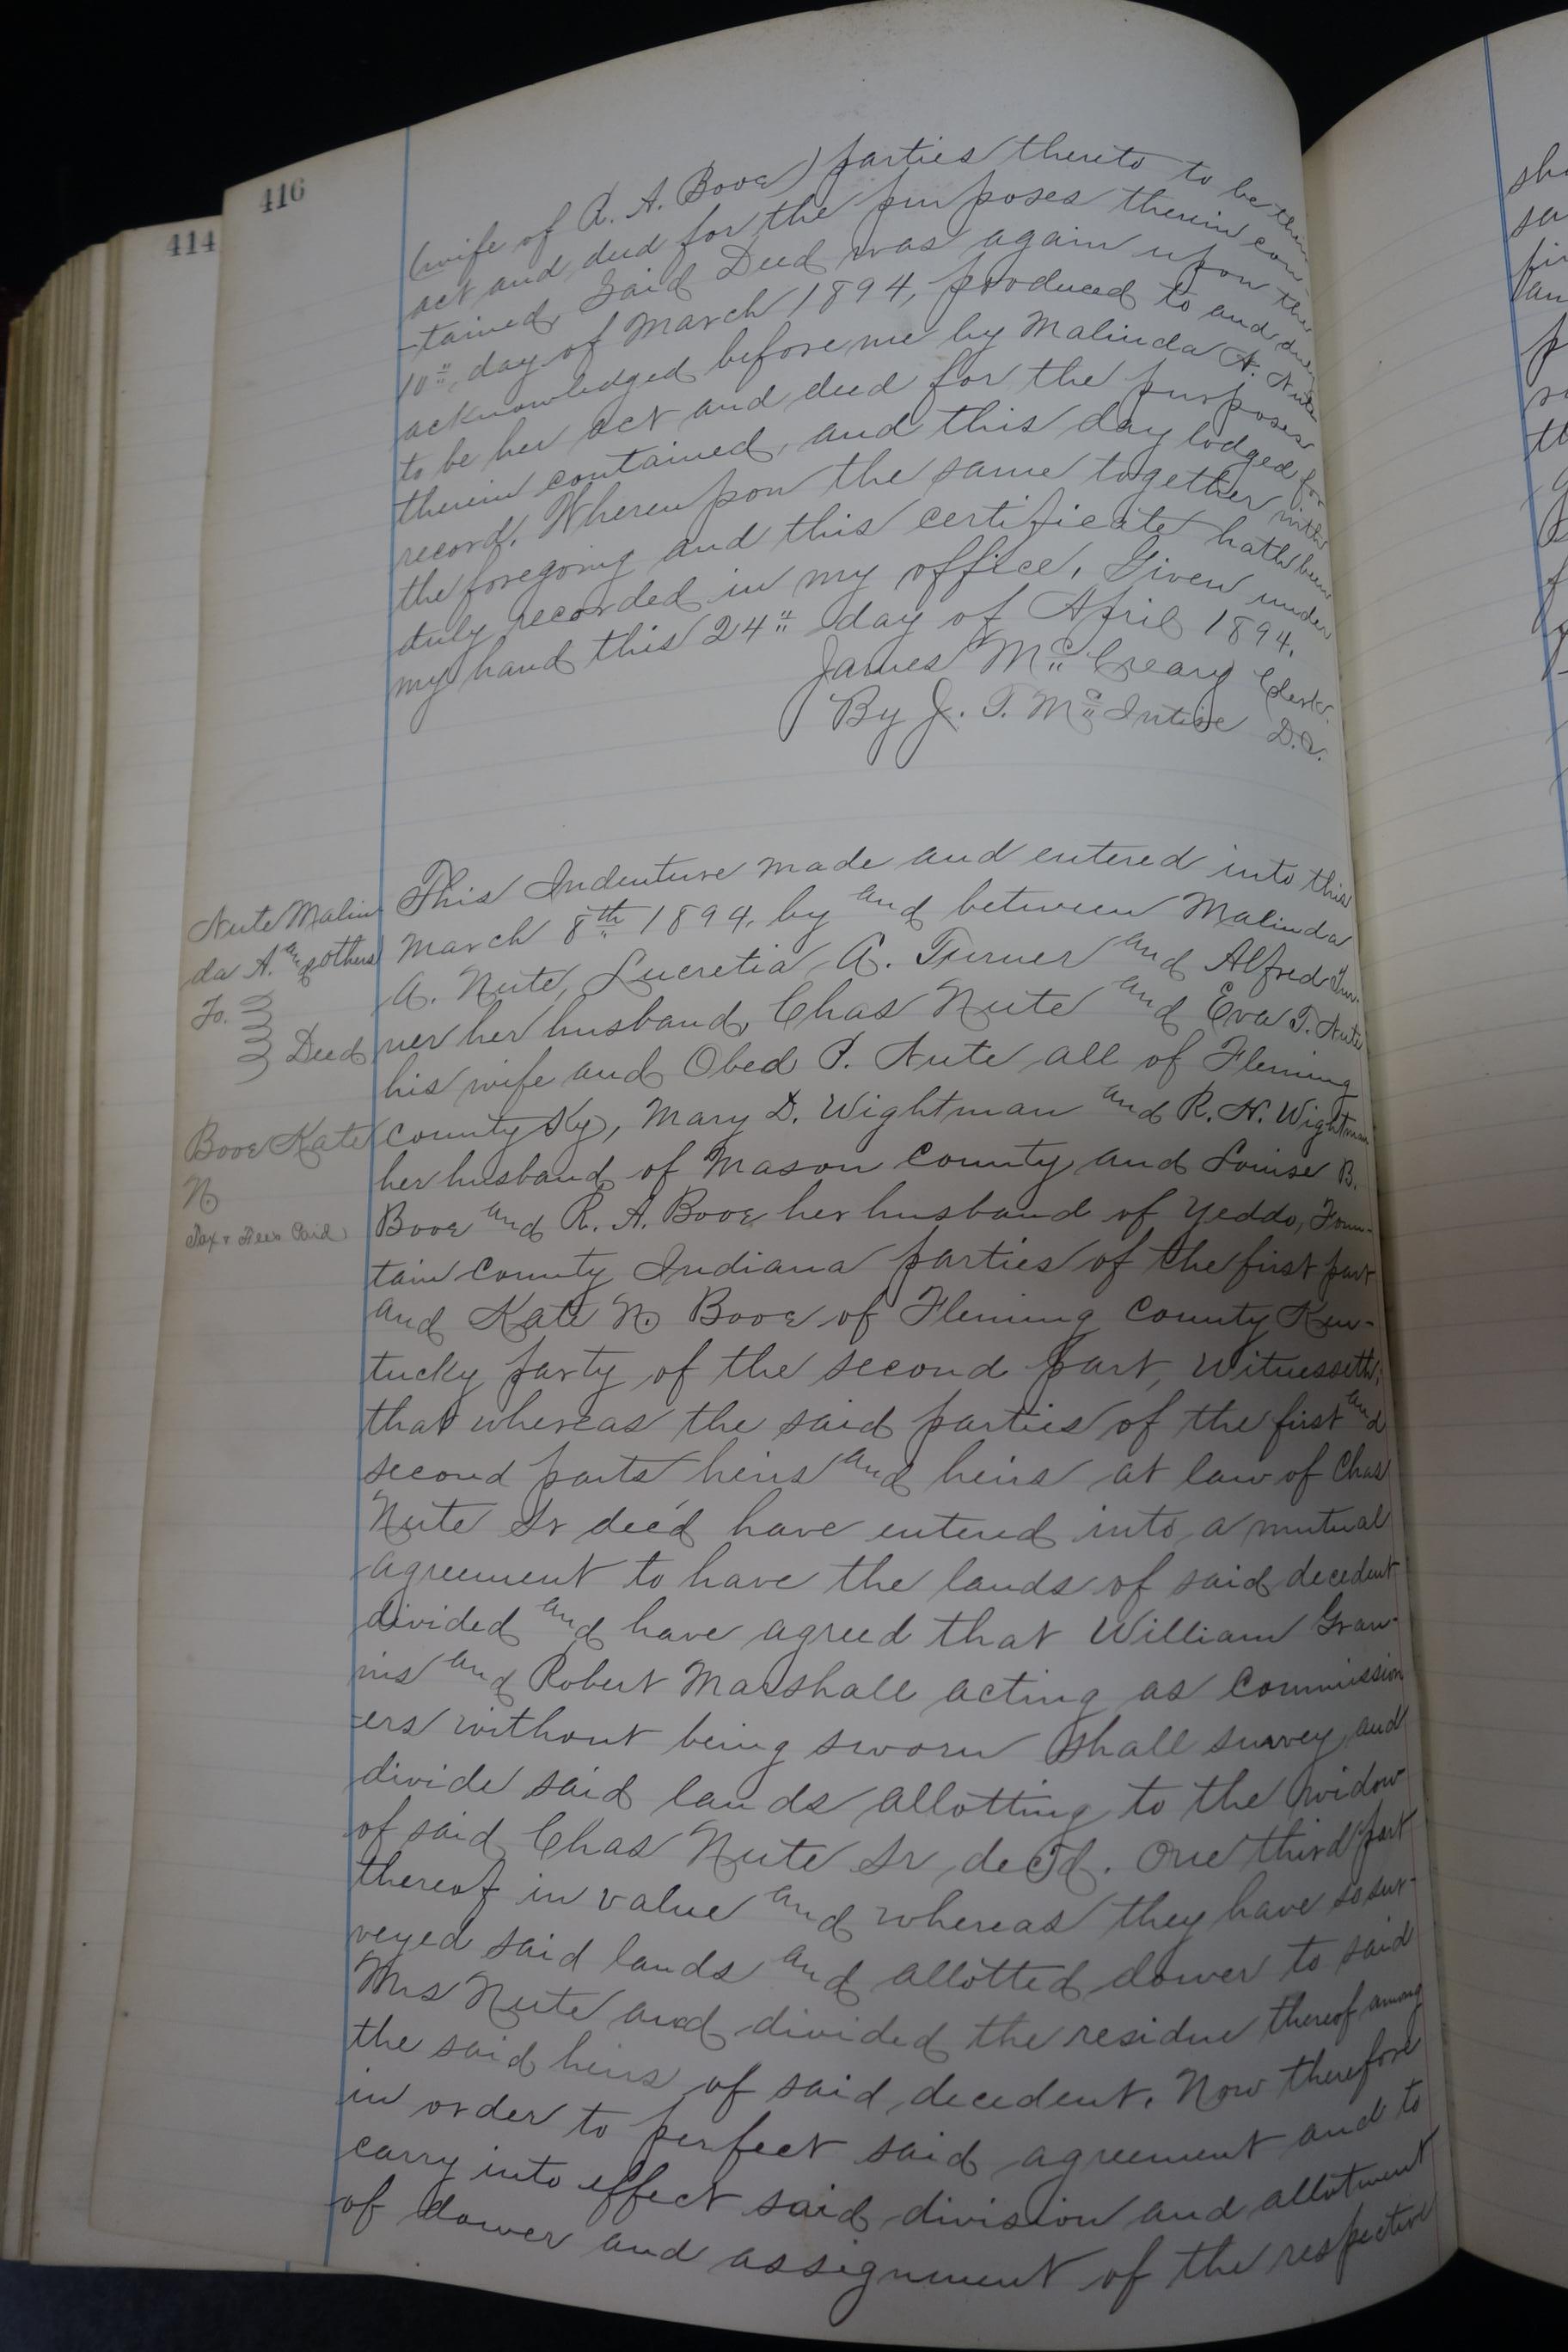 414
416
(wife of R. A. Booe) parties thereto to be their
act and deed for the purposes therein con-
-tained, Said Deed was again upon the
10" day of March 1894, produced to and duly
acknowledged before me by Malinda A. Nute
to be her act and deed for the purposes
therein contained, and this day lodged for
record. Whereupon the same together with
the foregoing and this certificate hath been
duly recorded in my office. Given under
my hand this 24" day of April 1894.
James Mc Creary Clerk.
By J. T. Mc Intire D.C.
Nute Malin
da A. and others
To.
Deed
Booe Kate
N
Tax & Fees Paid
This Indenture made and entered into this
March 8th 1894, by and between Malinda
A. Nute, Lucretia A. Turner and Alfred Tur-
ner her husband, Chas Nute and Eva T. Nute
his wife and Obed P. Nute all of Fleming
county Ky, Mary D. Wightman and R. H. Wightman
her husband of Mason County and Louise B.
Booe and R. A. Booe her husband of Yeddo, Foun-
tain County Indiana parties of the first part
and Kate N. Booe of Fleming County Ken-
tucky party of the second part, Witnesseth;
that whereas the said parties of the first and
second parts heirs and heirs at law of Chas
Nute Sr dec'd have entered into a mutual
agreement to have the lands of said decedent
divided and have agreed that William Gran-
nis and Robert Marshall acting as Commission
-ers without being sworn shall survey and
divide said lands allotting to the widow
of said Chas Nute Sr, dec'd. One third part
thereof in value and whereas they have so sur-
veyed said lands and allotted dower to said
Mrs Nute and divided the residue thereof among
the said heirs of said decedent. Now therefore
in order to perfect said agreement and to
carry into effect said division and allotment
of dower and assignment of the respective